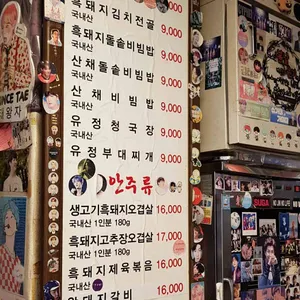 흑돼지김치전골 9,000
국내산
흑돼지돌솥비빔밥 9,000
국내산
산채돌솥비빔밥 9,000
국내산
산채비빔밥 9,000
국내산
유정청국장 9,000
국내산
유정부대찌개 9,000
국내산
안주류
생고기흑돼지오겹살 16,000
국내산 1인분 180g
흑돼지고추장오겹살 17,000
국내산 1인분 180g
흑돼지제육볶음 16,000
국내산
돼지갈비 16,000
SUGA